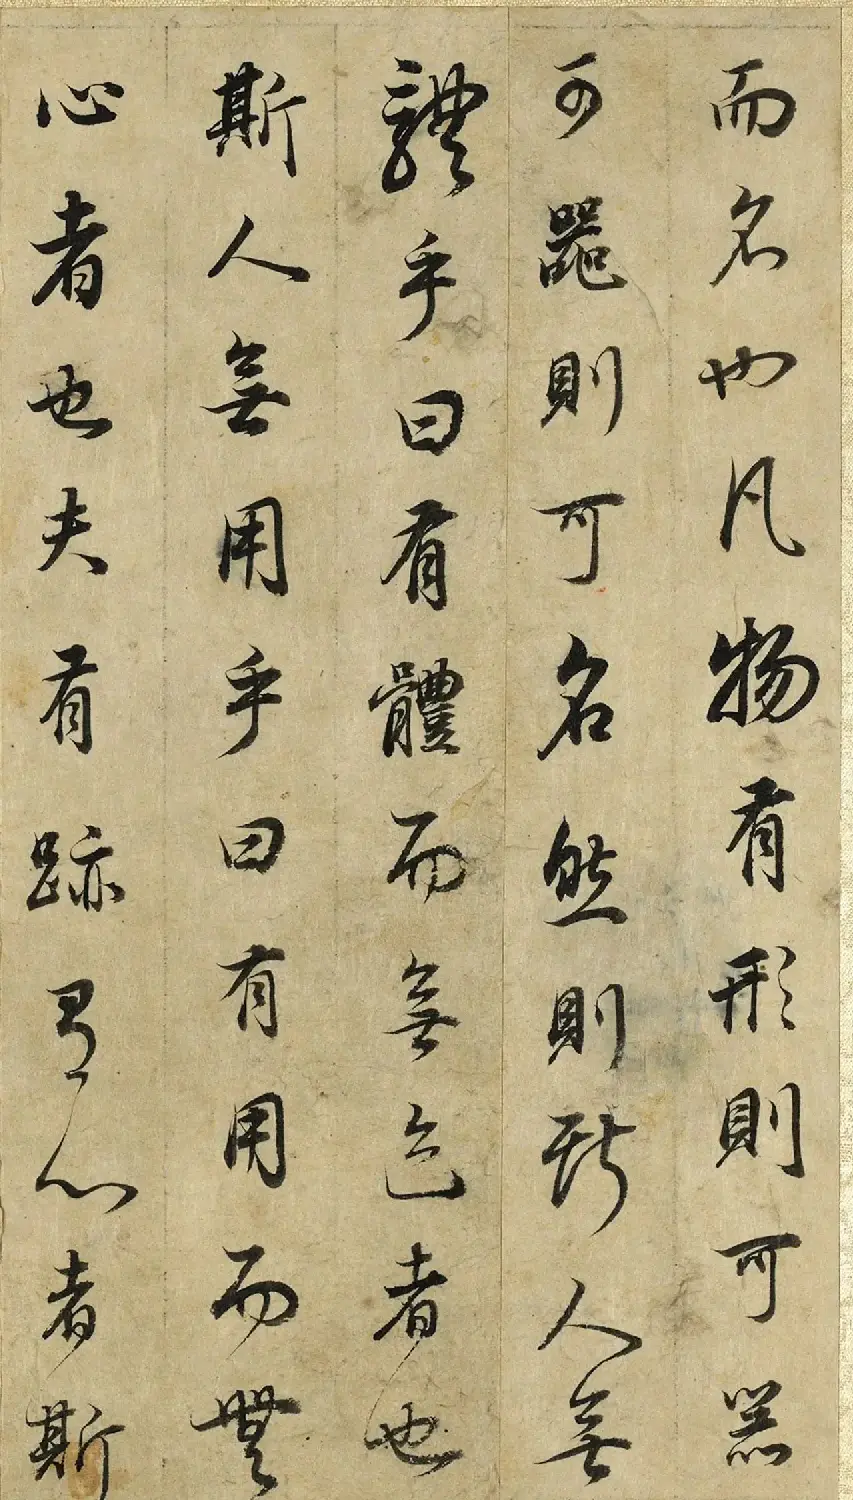 而名也凡物有形則可器
可器則可名然則斯人無
體乎曰有體而無色者也
斯人無用乎曰有用而無
心者也夫有跡有心者斯